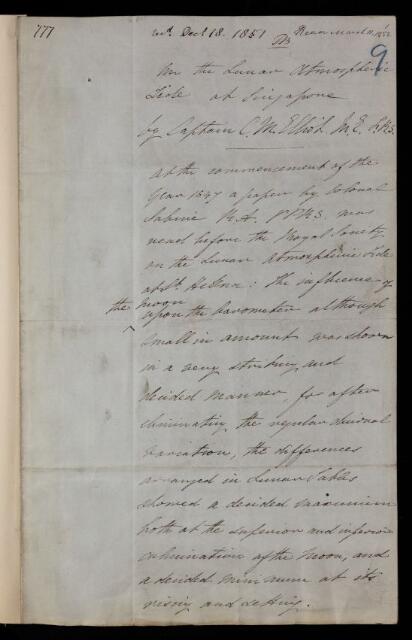 777
recd. Decr 18. 1851
Read March 11, 1852
9
On the Lunar Atmospheric
Tide at Singapore
by Captain C. M. Elliot. M. E. F.R.S.
At the commencement of the
Year 1847 a paper by Colonel
Sabine R.A. VPRS. was
read before the Royal Society
on the Lunar Atmospheric Tide
at St. Helena: the influence of
the moon
upon the barometer although
small in amount was shown
in a very striking and
decided manner, for after
eliminating the regular diurnal
variation, the differences
arranged in Lunar Tables
showed a decided maximum
both at the superior and inferior
culmination of the Moon, and
a decided minimum at its
rising and setting.